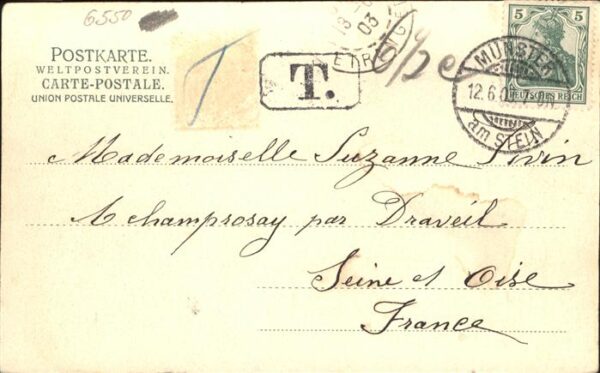 6550
POSTKARTE.
WELTPOSTVEREIN.
CARTE-POSTALE.
UNION POSTALE UNIVERSELLE.
T
T.
03
5 5
DEUTSCHES REICH
MÜNSTER
12.6.03
am STEIN
Mademoiselle Suzanne
A champrosay par Draveil
Seine et Oise
France